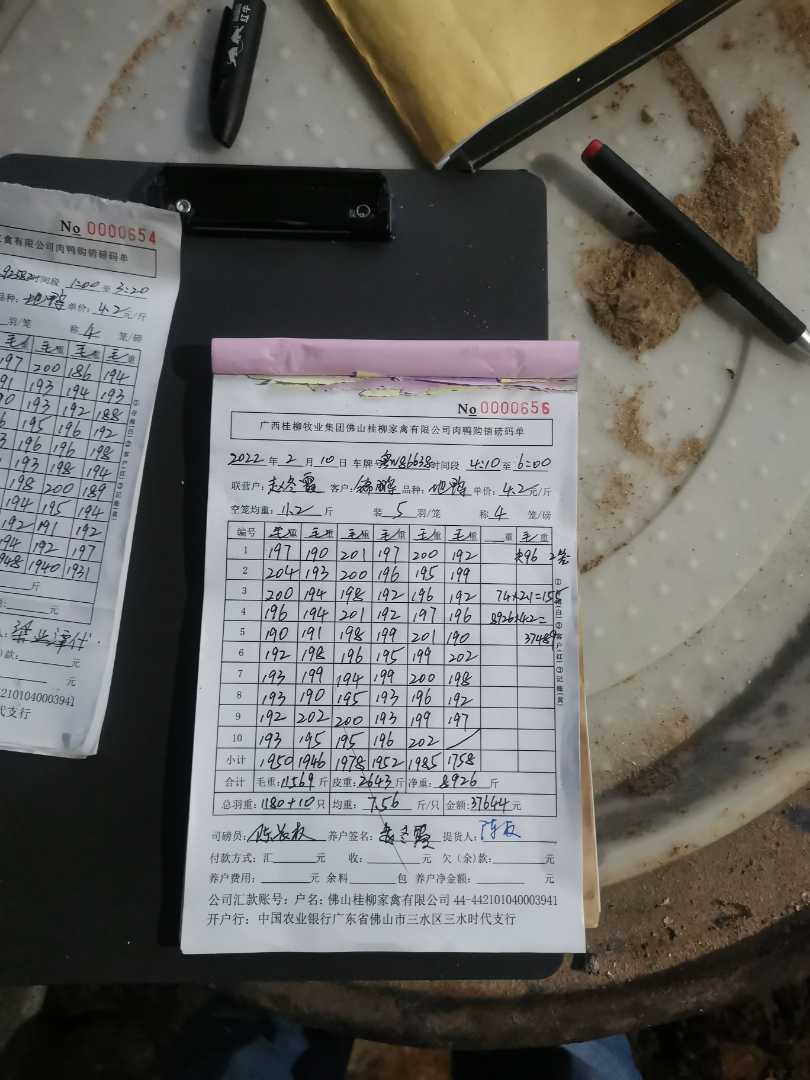 红牛
No 0000654
禽有限公司肉鸭购销磅码单
时间段 1:00 至 3:20
品种: 地鸭 单价: 4.2 元/斤
羽/笼 称 4 笼/磅
毛重 毛重 毛重 毛重
197 200 186 194
91 193 194 193
0 193 192 188
195 196 192
3 196 196 198
193 198 194
198 200 189
194 195 194
192 191 192
194 192 197
948 1940 1931
斤
元
元
元
2101040003941
代支行
No 0000656
广西桂柳牧业集团佛山桂柳家禽有限公司肉鸭购销磅码单
2022 年 2 月 10 日 车牌号 粤W86638 时间段 4:10 至 6:00
联营户: 赵冬霞 客户: 锦鹏 品种: 地鸭 单价: 4.2 元/斤
空笼均重: 11.2 斤 装 5 羽/笼 称 4 笼/磅
编号 毛重 毛重 毛重 毛重 毛重 毛重 重 毛重
1 197 190 201 197 200 192 共96 2笼
2 204 193 200 196 195 199
3 200 194 198 192 196 192 74×21=155
4 196 194 201 192 197 196 8926×4.2=
5 190 191 198 199 201 190 37489
6 192 198 196 195 199 202
7 193 199 194 199 200 198
8 193 190 195 193 196 192
9 192 202 200 193 199 197
10 193 195 195 196 202
小计 1950 1946 1978 1952 1985 1758
合计 毛重: 11569 斤 皮重: 2643 斤 净重: 8926 斤
总羽重: 1180+10 只 均重: 7.56 斤/只 金额: 37644 元
司磅员: 养户签名: 提货人:
付款方式: 汇 元 收: 元 欠(余)款: 元
养户费用: 元 余料 包 养户净金额: 元
公司汇款账号: 户名: 佛山桂柳家禽有限公司 44-442101040003941
开户行: 中国农业银行广东省佛山市三水区三水时代支行